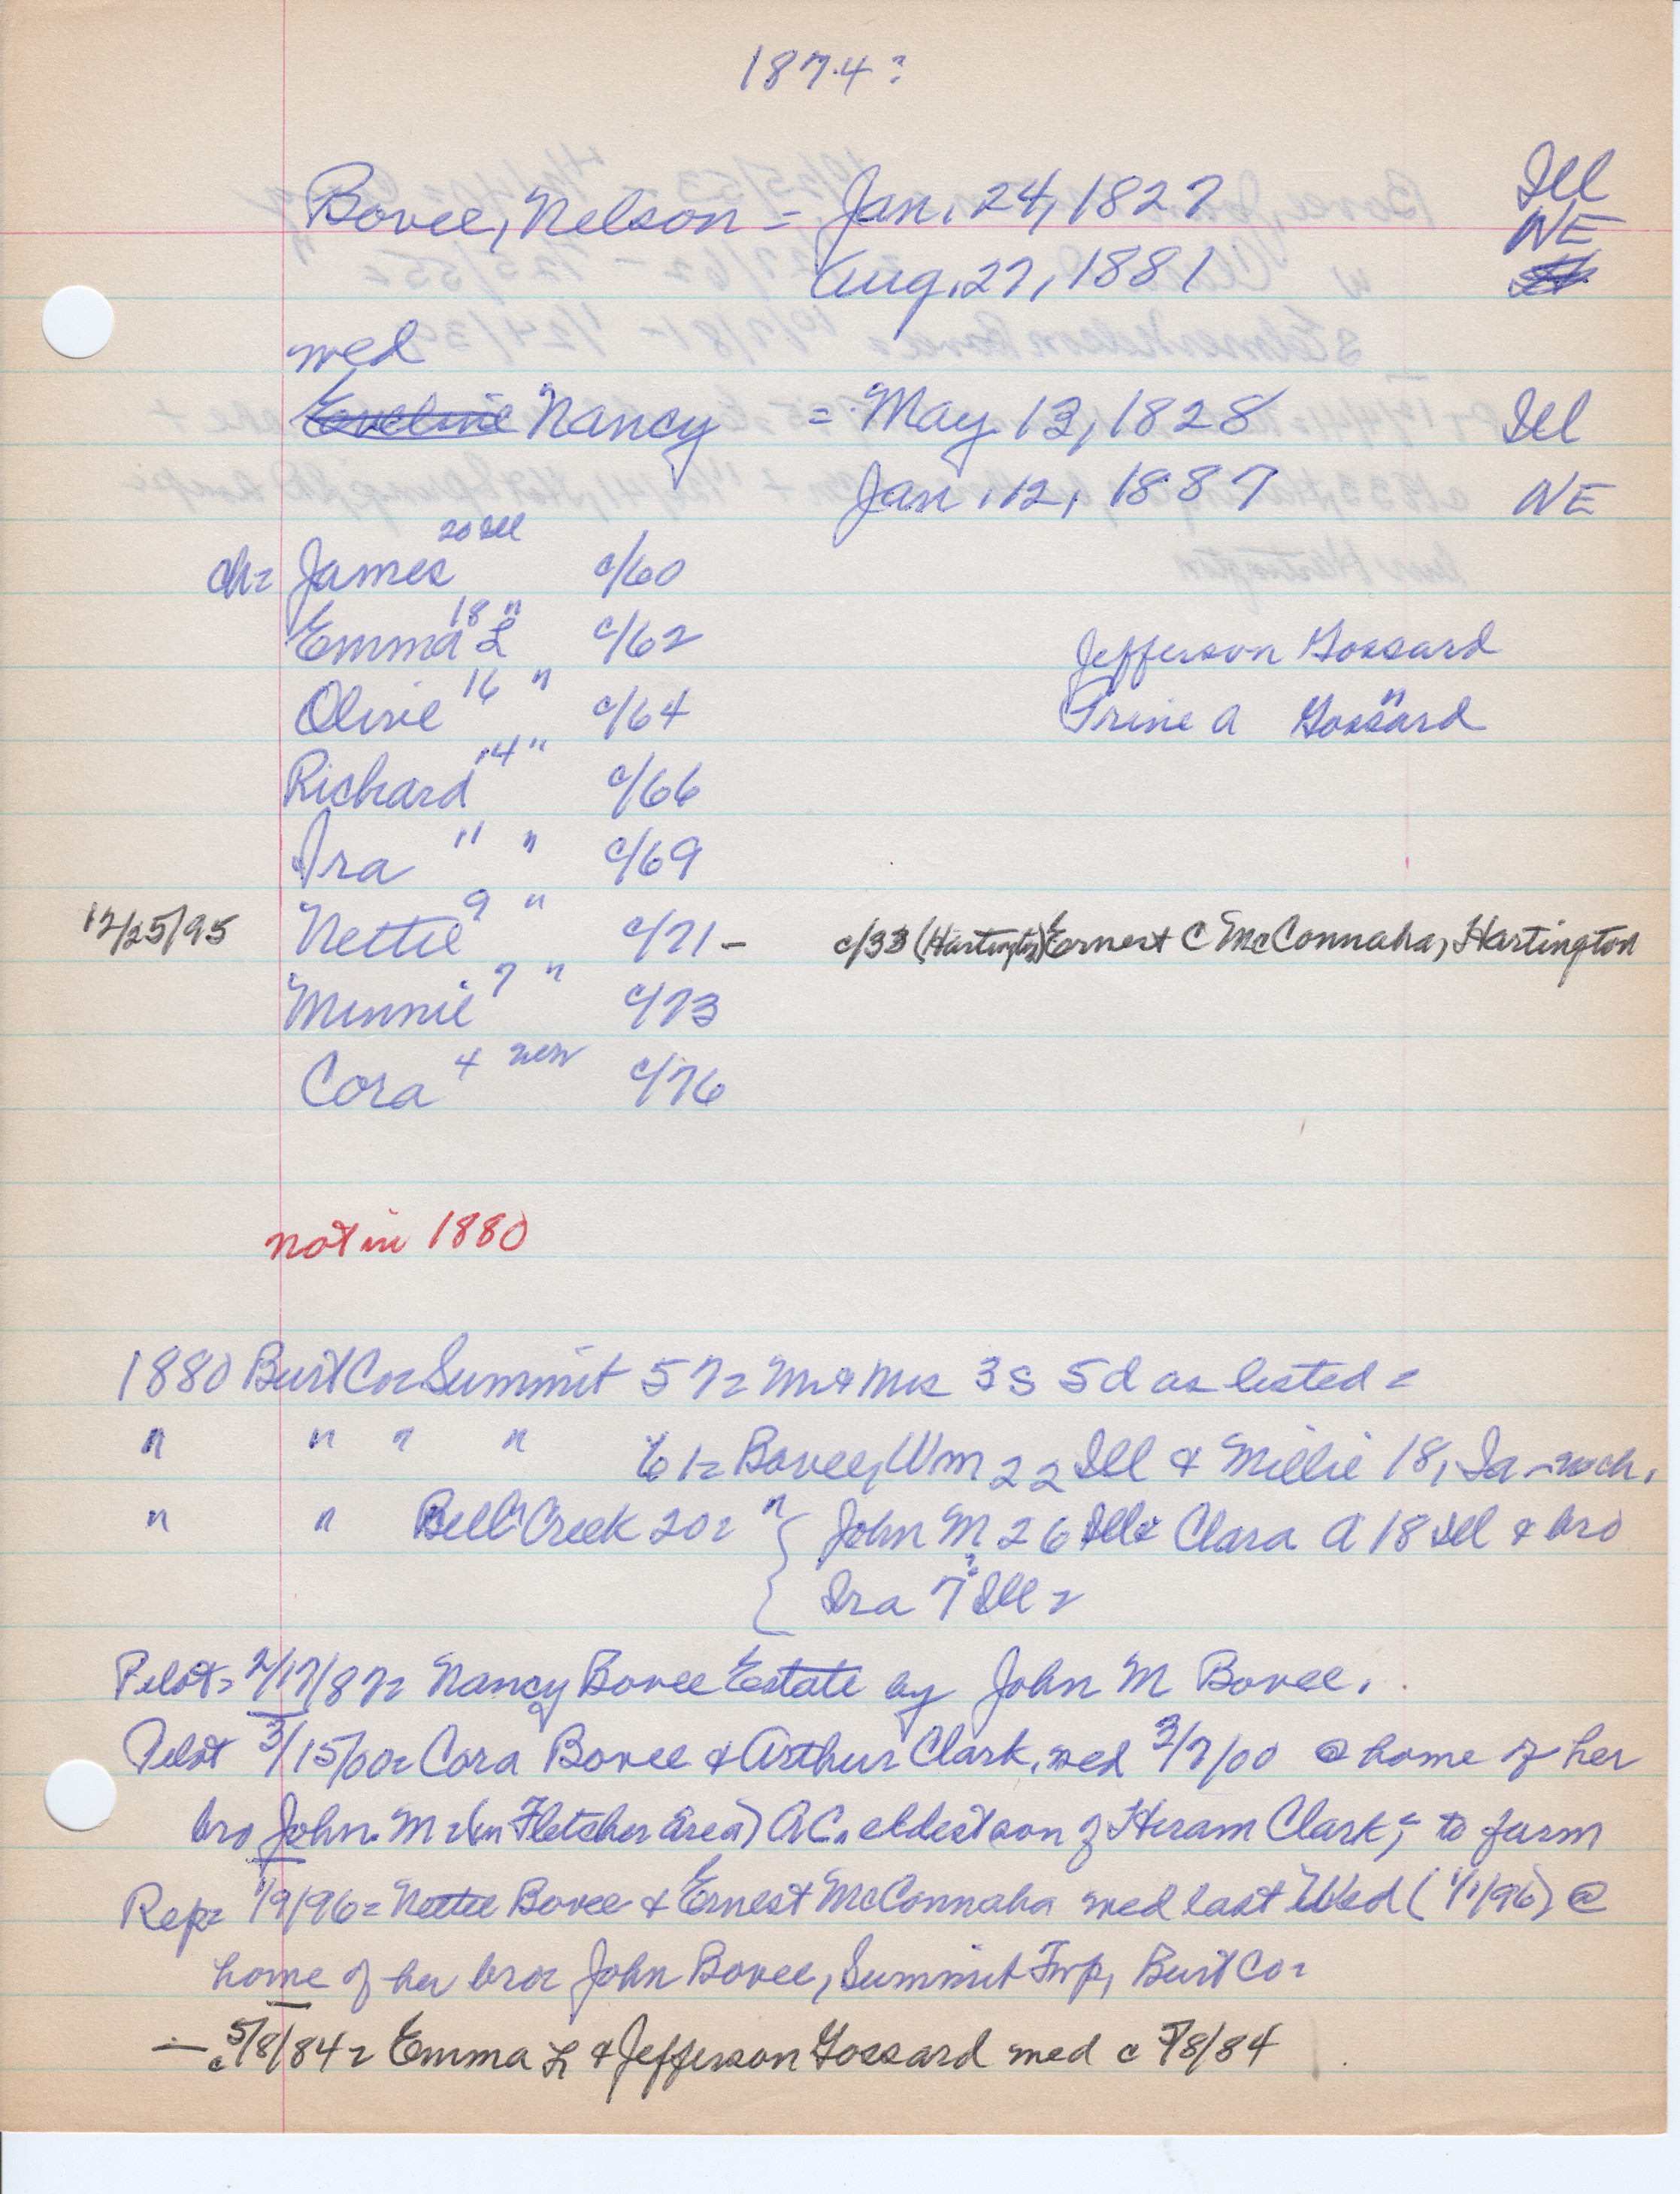 1874?
Bovee, Nelson = Jan. 24, 1827 Ill
NE
Aug. 27, 1881
wed
Eveline Nancy = May 13, 1828 Ill
Jan. 12, 1887 NE
ch= James 20 Ill c/60
Emma L 18 " c/62 Jefferson Gossard
Olivie 16 " c/64 A " Gossard
Richard 14 " c/66
Ira 11 " c/69
12/25/95 Nettie 9 " c/71 - c/33 (Hartington) Earnest C McConnaha, Hartington
Minnie 7 " c/73
Cora 4 c/76
not in 1880
1880 Burt Co= Summit 57= Mr & Mrs 3s 5d as listed =
" " " " 61= Bovee, Wm 22 Ill & Millie 18, Ia - no ch.
" " Bell Creek 20= " { John M 26 Ill & Clara A 18 Ill & bro
Ira 7? Ill =
Pilot= 2/17/87= Nancy Bovee Estate by John M Bovee.
Pilot 3/15/00= Cora Bovee & Arthur Clark, wed 3/7/00 @ home of her
bro John M = (in Fletcher area) A C. eldest son of Hiram Clark, = to farm
Rep= 1/9/96= Nettie Bovee & Ernest McConnaha wed last Wed (1/1/96) @
home of her bro= John Bovee, Summit Twp, Burt Co=
— c 5/8/84= Emma L & Jefferson Gossard wed c 5/8/84